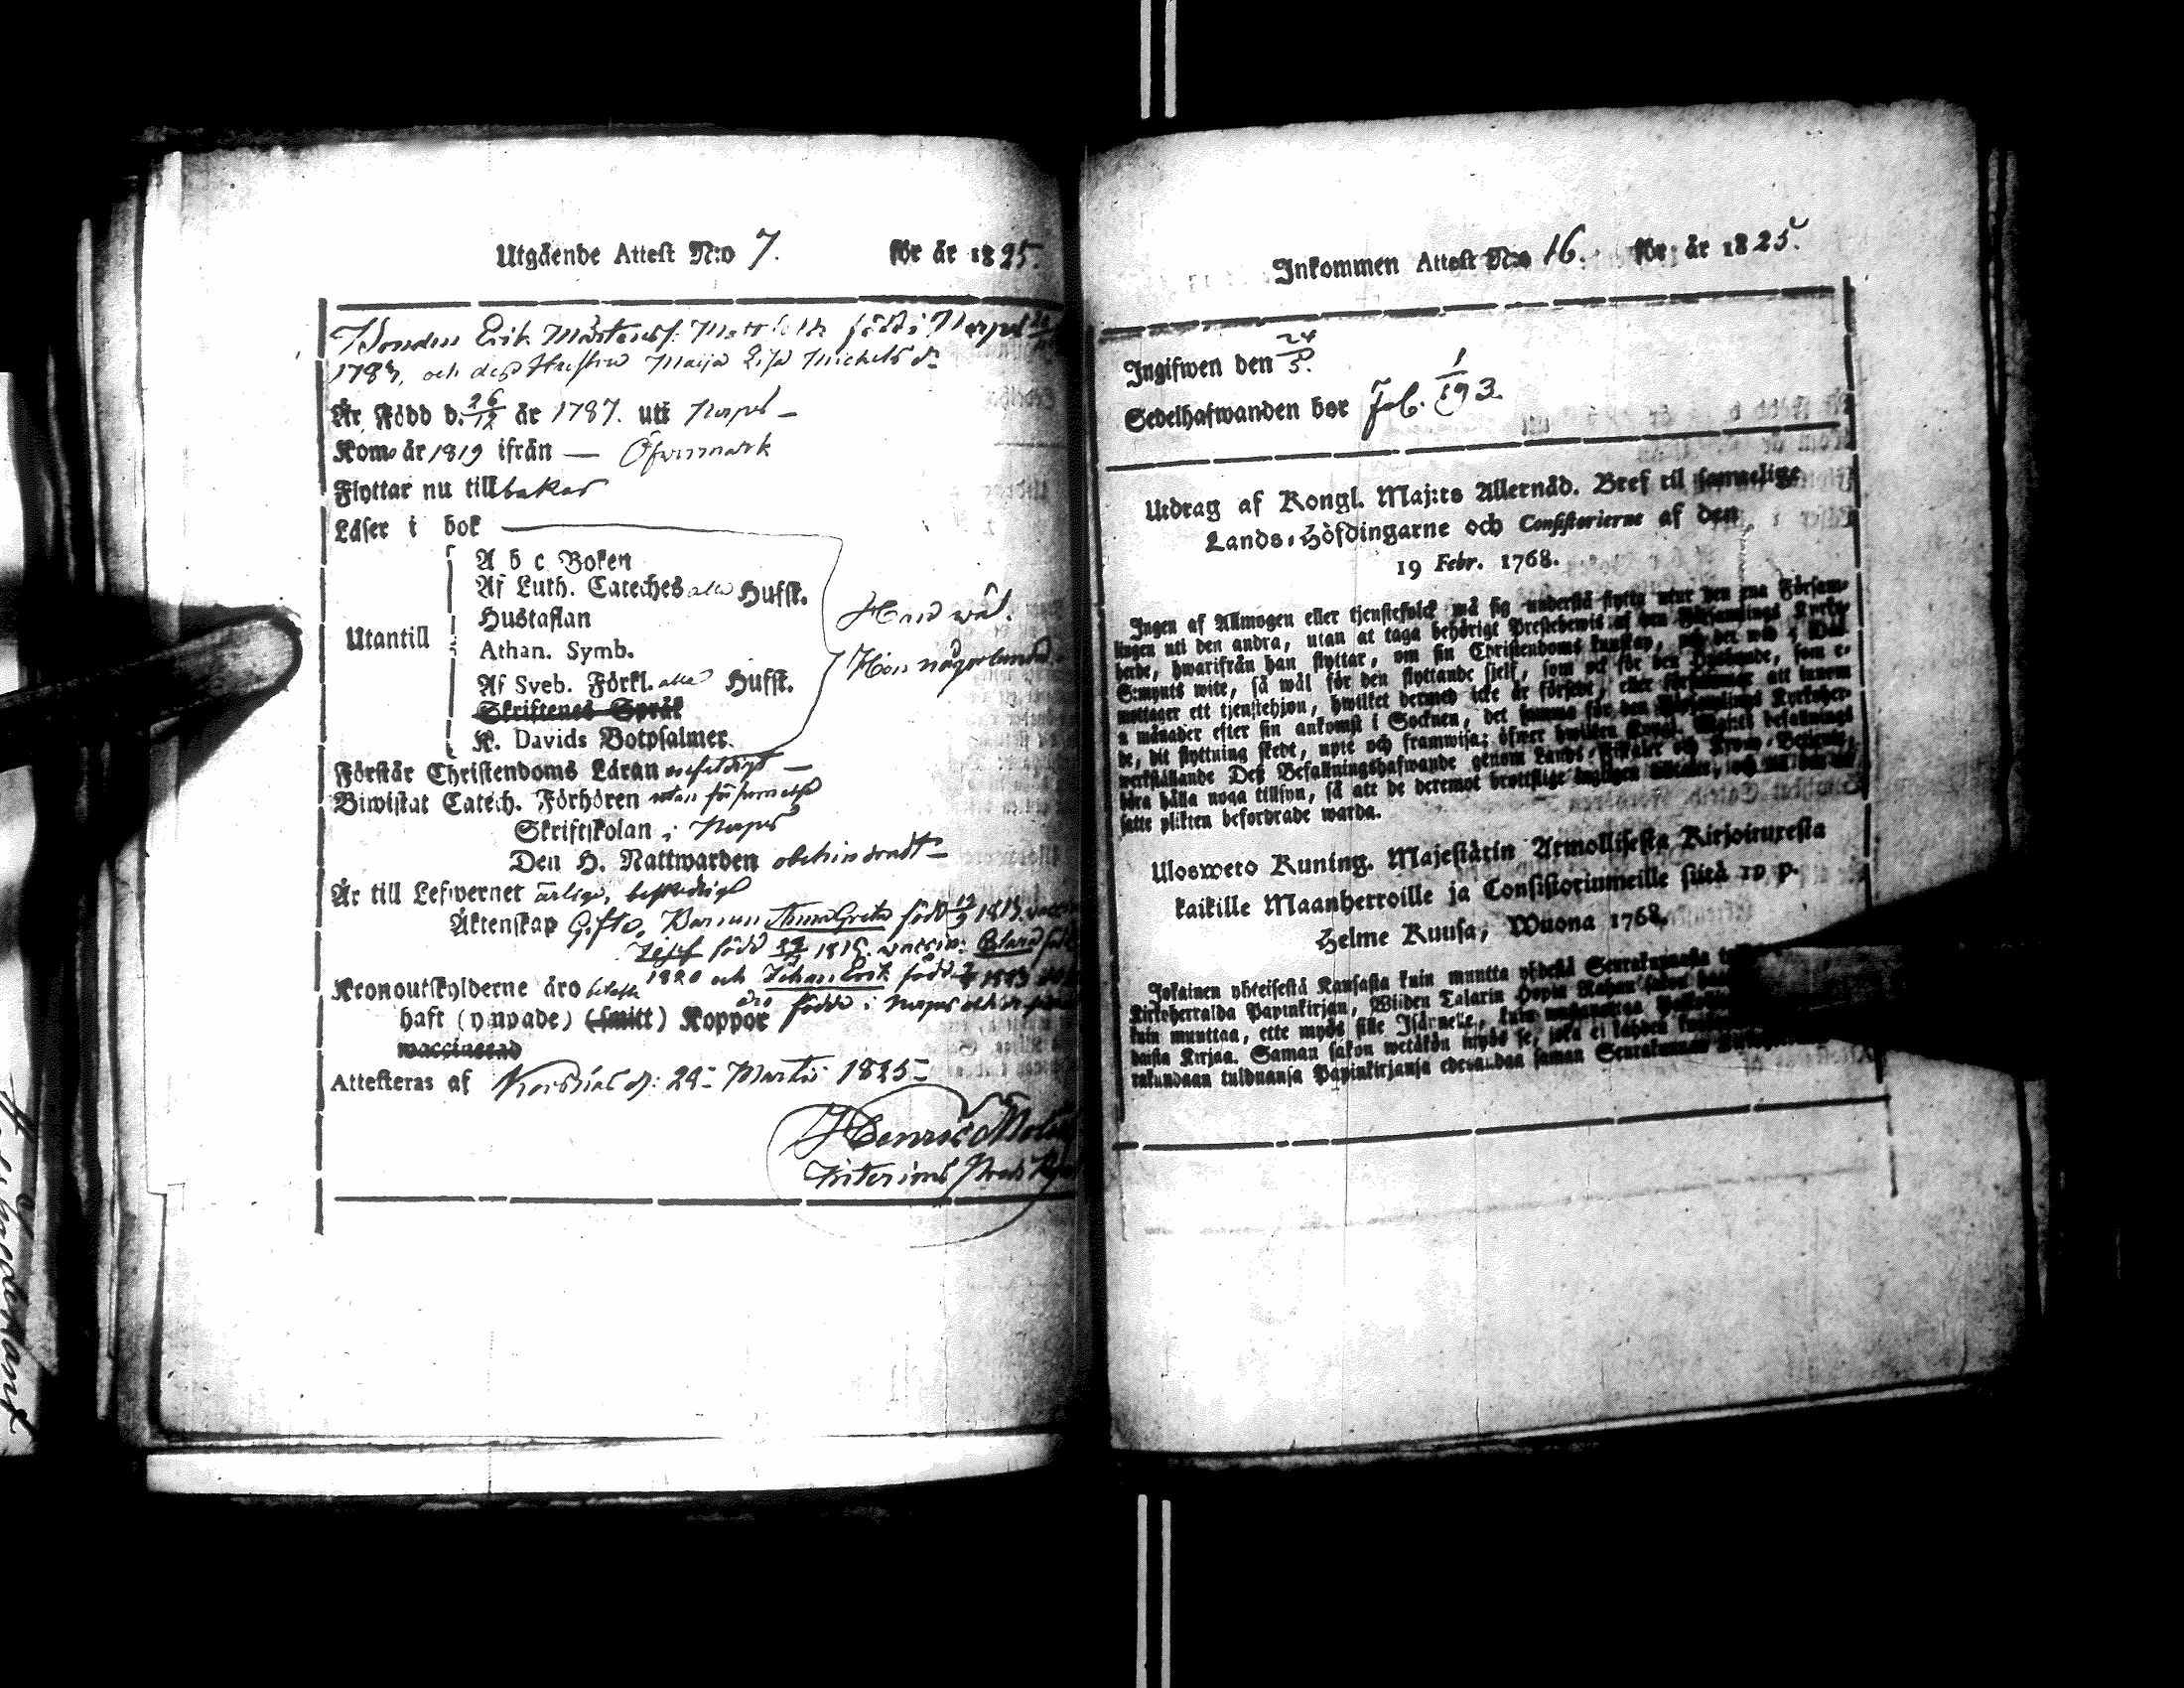 Utgående Attest N:o 7. för år 1825.
Bonden Erik Mårtensf: född i Nerpes
1787, och deß Hustru Maija Lisa Michelsdr
Är Född d. 26/12 år 1787. uti Nerpes –
Kom år 1819 ifrån — Öfvermark
Flyttar nu till bakar
Läser i bok
Utantill
A b c Boken
Af Luth. Cateches alla Hufst.
Hustaflan
Athan. Symb.
Af Sveb. Förkl. alla Hufst.
Skriftenes Språk
K. Davids Botpsalmer.
Han wäl.
Hon någorlunda.
Förstår Christendoms Läran enfaldigt —
Biwistat Catech. Förhören utan försummelse
Skriftskolan i Nerpes
Den H. Nattwarden obehindradt –
Är till Lefwernet ärliga, beskedliga
Äktenskap Gifta, Barnen Anna Greta född 1813.
född 1815. vaccin: född
Kronoutskylderne äro 1820 och Johan Erik född
haft (ympade) (smitt) Koppor födde i Nerpes
waccinerad
Attesteras af Korsnäs d: 22 Martii 1825
Henric
Inkommen Attest N:o 16. för år 1825.
Ingifwen den 24/3.
Sedelhafwanden bor 193.
Utdrag af Kongl. Maj:ts Allernåd. Bref til samtelige
Lands-Höfdingarne och Consistorierne af den
19 Febr. 1768.
Ingen af Allmogen eller tjenstefolck må sig understå flytta utur den ena Försam-
lingen uti den andra, utan at taga behörigt Prestebewis af den Församlings Kyrko-
herde, hwarifrån han flyttar, om sin Christendoms kunskap, och det wid 5 Dal.
S:mynts wite, så wäl för den flyttande sjelf, som ock för den Husbonde, som e-
mottager ett tjenstehjon, hwilket dermed icke är försedt, eller försummar att innom
n månader efter sin ankomst i Socknen, det samma för den Församlings Kyrkoher-
de, dit flyttning skedt, upte och framwisa; öfwer hwilken Kongl. Maj:ts befallnings
werkställande Deß Befallningshafwande genom Lands-Fiskaler och Krono-Betjente,
böra hålla noga tillsyn, så att de deremot brottslige
satte plikten befordrade warda.
Ulosweto Kuning. Majestätin Armollisesta Kirjoituxesta
kaikille Maanherroille ja Consistoriumeille siitä 19 p.
Helme Kuusa, Wuona 1768.
Jokainen yhteisestä Kansasta kuin muutta yhdestä Seurakunnasta
Kirkoherralda Papinkirjan, Wiiden Talarin Hopia Rahan sakon
kuin muuttaa, ette myös sille Isännelle, kuin wastanottaa
daista Kirjaa. Saman sakon wetäkön myös se, joka ei kahden
rakundaan tulduansa Papinkirjansa edesandaa saman Seurakunnan